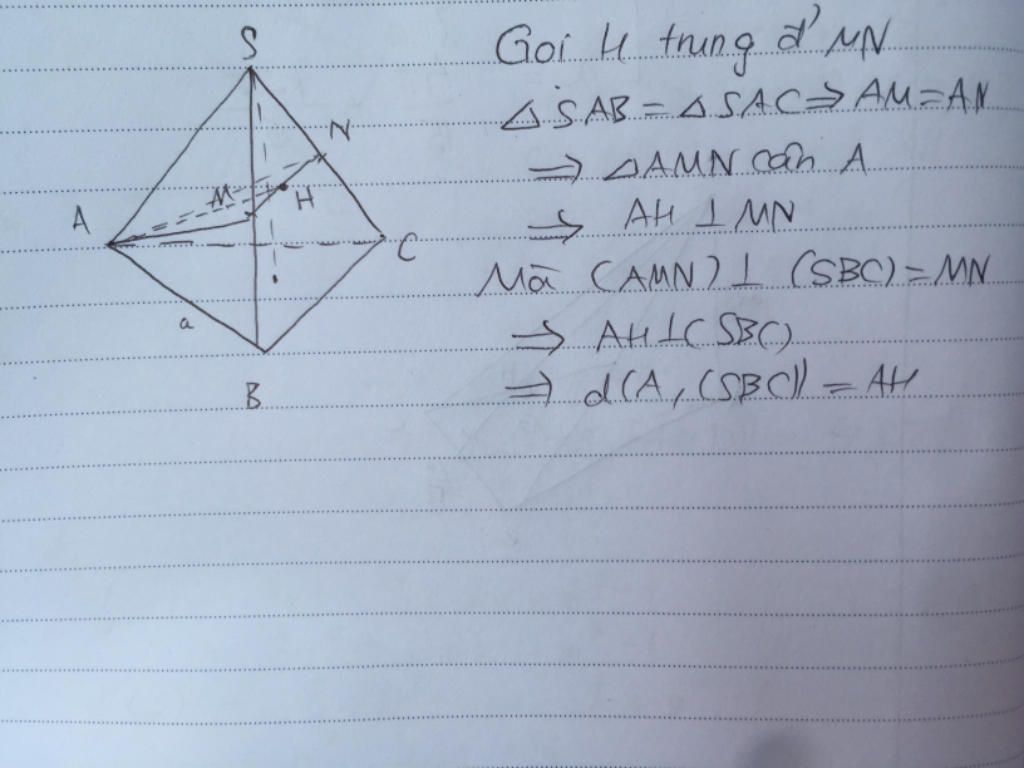 S
N
M
H
A
C
a
B
Gọi H trung đ' MN
△SAB = △SAC ⇒ AM = AN
⇒ △AMN cân A
⇒ AH ⊥ MN
Mà (AMN) ⊥ (SBC) = MN
⇒ AH ⊥ (SBC)
⇒ d(A, (SBC)) = AH